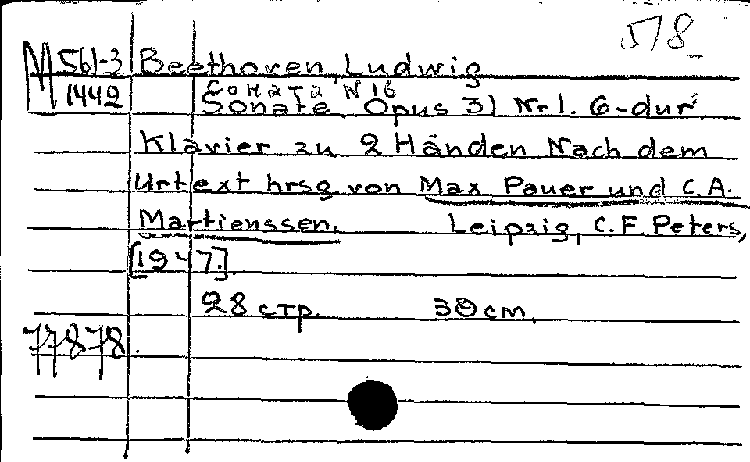 578
M 561-3 Beethoven, Ludwig
1442 Соната N 16
Sonate, Opus 31 Nr 1. G-dur
Klavier zu 2 Händen Nach dem
Urtext hrsg von Max Pauer und C.A.
Martienssen. Leipzig, C.F. Peters,
[1947.]
28 стр. 30 cm.
77878